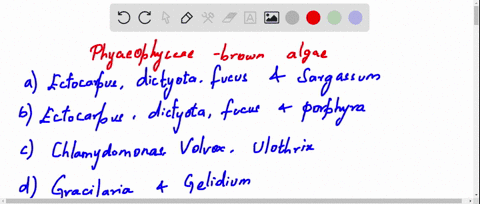 Phyaeophyceae - brown algae
a) Ectocarpus, dictyota. fucus & Sargassum
b) Ectocarpus. dictyota, fucus & porphyra
c) Chlamydomonas Volvox. Ulothrix
d) Gracilaria & Gelidium